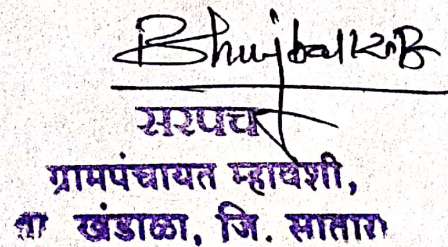 Bhujbal K.B
सरपंच
ग्रामपंचायत म्हावशी,
ता खंडाळा, जि. सातारा